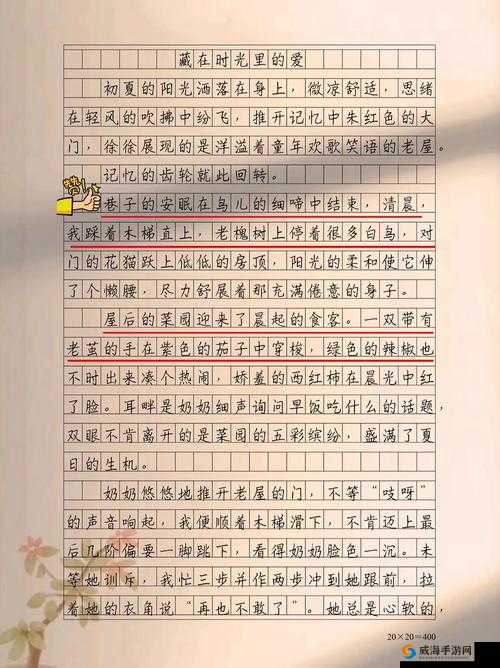 藏在时光里的爱
初夏的阳光洒落在身上，微凉舒适，思绪
在轻风的吹拂中纷飞，推开记忆中朱红色的大
门，徐徐展现的是洋溢着童年欢歌笑语的老屋。
记忆的齿轮就此回转。
巷子的安眠在鸟儿的细啼中结束，清晨，
我踩着木梯直上，老槐树上停着很多白鸟，对
门的花猫跃上低低的房顶，阳光的柔和使它伸
了个懒腰，尽力舒展着那充满倦意的身子。
屋后的菜园迎来了晨起的食客。一双带有
老茧的手在紫色的茄子中穿梭，绿色的辣椒也
不时出来凑个热闹，娇羞的西红柿在晨光中红
了脸。耳畔是奶奶细声询问早饭吃什么的话题，
双眼不肯离开的是菜园的五彩缤纷，盛满了夏
日的生机。
奶奶悠悠地推开老屋的门，不等“吱呀”
的声音响起，我便顺着木梯滑下，不肯迈上最
后几阶偏要一脚跳下，看得奶奶脸色一沉。未
等她训斥，我忙三步并作两步冲到她跟前，拉
着她的衣角说“再也不敢了”。她总是心软的，
20×20=400
威海手游网